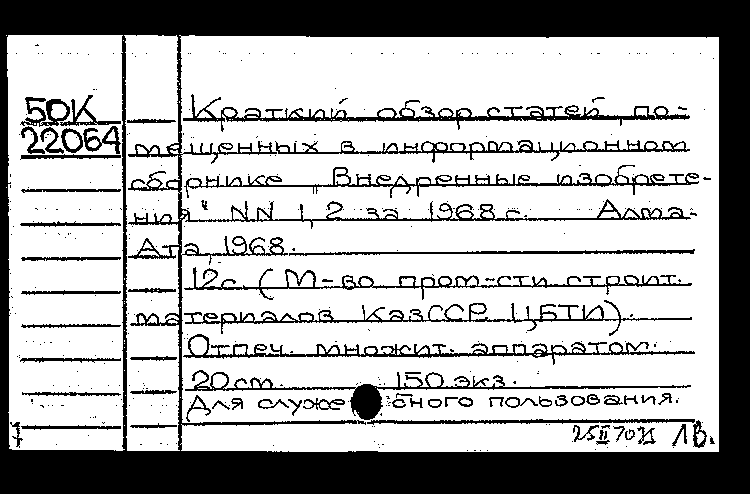 50К
22064
Краткий обзор статей, по-
мещенных в информационном
сборнике „Внедренные изобрете-
ния" NN 1, 2 за 1968 г. Алма-
Ата, 1968.
12с. (М-во пром-сти строит.
материалов КазССР. ЦБТИ).
Отпеч. множит. аппаратом.
20 ст. 150 экз.
Для служебного пользования.
7
1В.